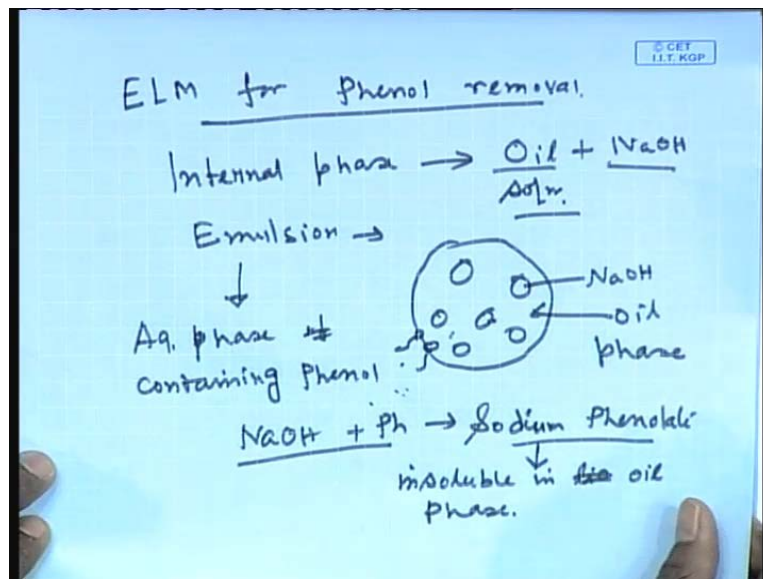 © CET
I.I.T. KGP
ELM for Phenol removal.
Internal phase → Oil + NaOH
soln.
Emulsion →
NaOH
Oil
phase
Aq. phase
containing Phenol
NaOH + Ph → Sodium Phenolate
insoluble in oil
phase.